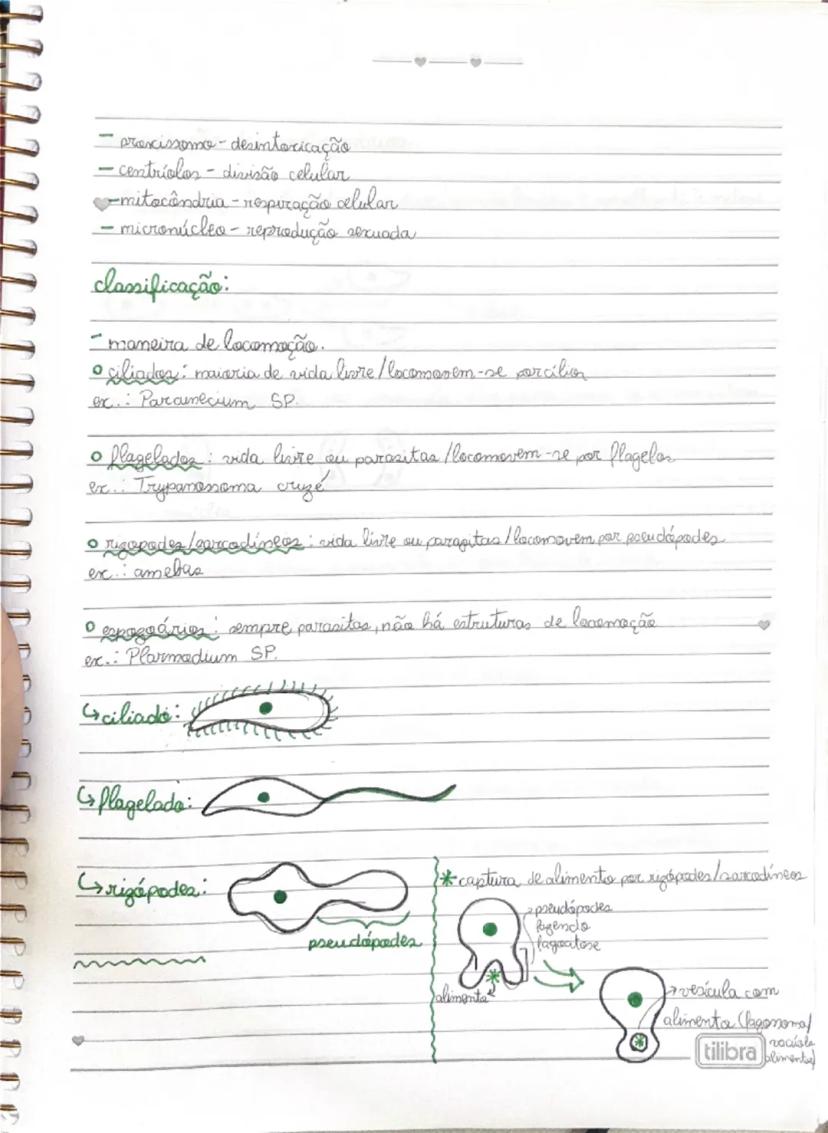 - peroxissomo - desintoxicação
- centríolos - divisão celular
- mitocôndria - respiração celular
- micronúcleo - reprodução sexuada
classificação:
- maneira de locomoção.
o ciliados: maioria de vida livre/locomovem-se por cílios
ex.: Paramecium SP.
o flagelados: vida livre ou parasitas/locomovem-se por flagelos
ex.: Trypanossoma cruzé
o rizopodes/sarcodíneos: vida livre ou parasitas/locomovem por pseudópodes
ex.: amebas
o espozoários: sempre parasitas, não há estruturas de locomoção
ex.: Plasmodium SP.
↳ ciliado:
↳ flagelado:
↳ rizópodes:
pseudópodes
* captura de alimento por rizópodes/sarcodíneos
pseudópodes
fazendo
fagocitose
alimento
→ vesícula com
alimento (fagossomo/
vacúolo
alimentar)
tilibra